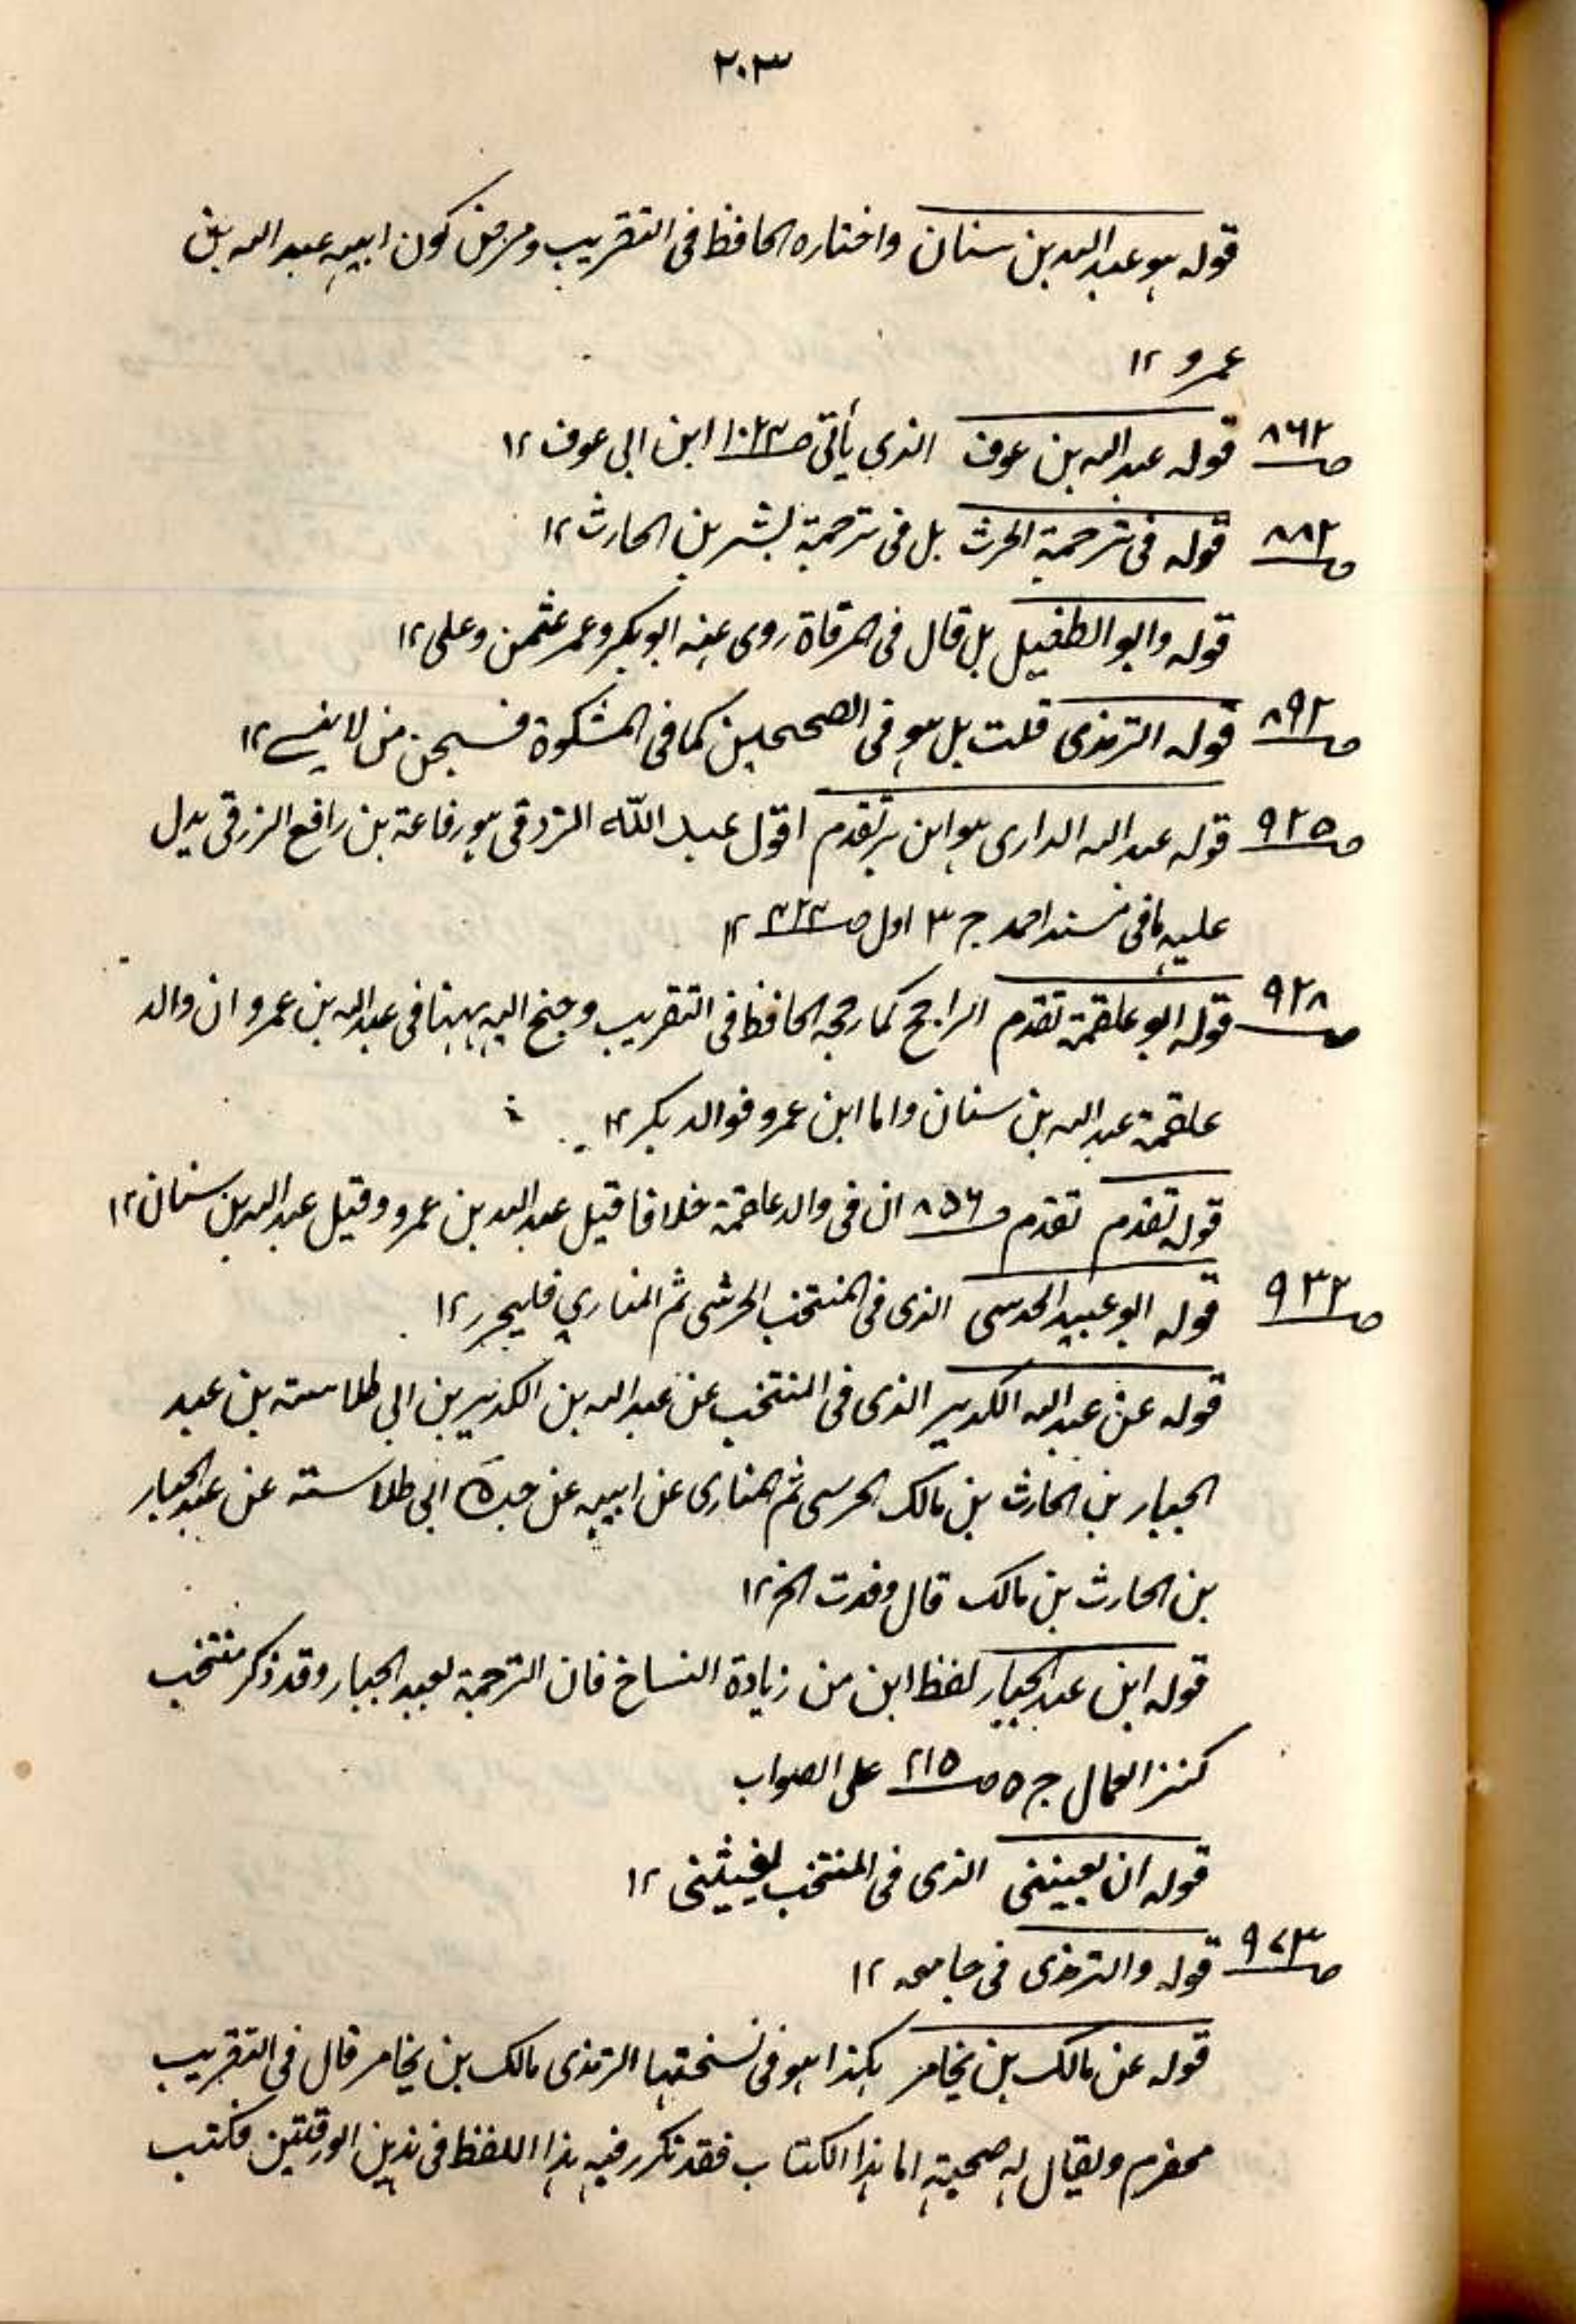 ٢٠٣
قوله هو عبد الله بن سنان واختاره الحافظ فى التقريب ومرض كون ابيه عبد الله بن
عمرو ١٢
ص٨٦٢ قوله عبد الله بن عوف الذى يأتى ص١٠٢٣ ابن ابى عوف ١٢
ص٨٨٢ قوله فى ترجمة الحرث بل فى ترجمة بشر بن الحارث ١٢
قوله وابو الطفيل بل قال فى المرقاة روى عنه ابو بكر وعمر عثمن وعلى ١٢
ص٨٩٢ قوله الترمذى قلت بل هو فى الصحيحين كما فى المشكوة فسبحن من لا ينسى ١٢
ص٩٢٥ قوله عبد الله الدارى هو ابن بر تقدم اقول عبد اللّه الزرقى هو رفاعة بن رافع الزرقى يدل
عليه ما فى مسند احمد ج ٣ اول ص٤٢٤ ١٢
ص٩٢٨ قوله ابو علقمة تقدم الراجح كما رجحه الحافظ فى التقريب وجنح اليه ههنا فى عبد الله بن عمرو ان والد
علقمة عبد الله بن سنان واما ابن عمرو فوالد بكر ١٢
قوله تقدم تقدم ص٨٥٦ ان فى والد علقمة خلافا قيل عبد الله بن عمرو وقيل عبد الله بن سنان ١٢
ص٩٣٢ قوله ابو عبيد الحدسى الذى فى المنتخب الحرشى ثم المنارى فليحرر ١٢
قوله عن عبد الله الكدير الذى فى المنتخب عن عبد الله بن الكدير بن ابى طلاسة بن عبد
الجبار بن الحارث بن مالك الحرسى ثم المنارى عن ابيه عن جده ابى طلاسته عن عبد الجبار
بن الحارث بن مالك قال وفدت الخ ١٢
قوله ابن عبد الجبار لفظ ابن من زيادة النساخ فان الترجمة لعبد الجبار وقد ذكر منتخب
كنز العمال ج ٥ ص٢١٥ على الصواب
قوله ان يعيننى الذى فى المنتخب يغيثنى ١٢
ص٩٧٣ قوله والترمذى فى جامعه ١٢
قوله عن مالك بن يخامر هكذا هو فى نسختها الترمذى مالك بن يخامر قال فى التقريب
مخضرم ويقال له صحبة اما هذا الكتاب فقد تكرر فيه هذا اللفظ فى هذين الورقتين فكتب